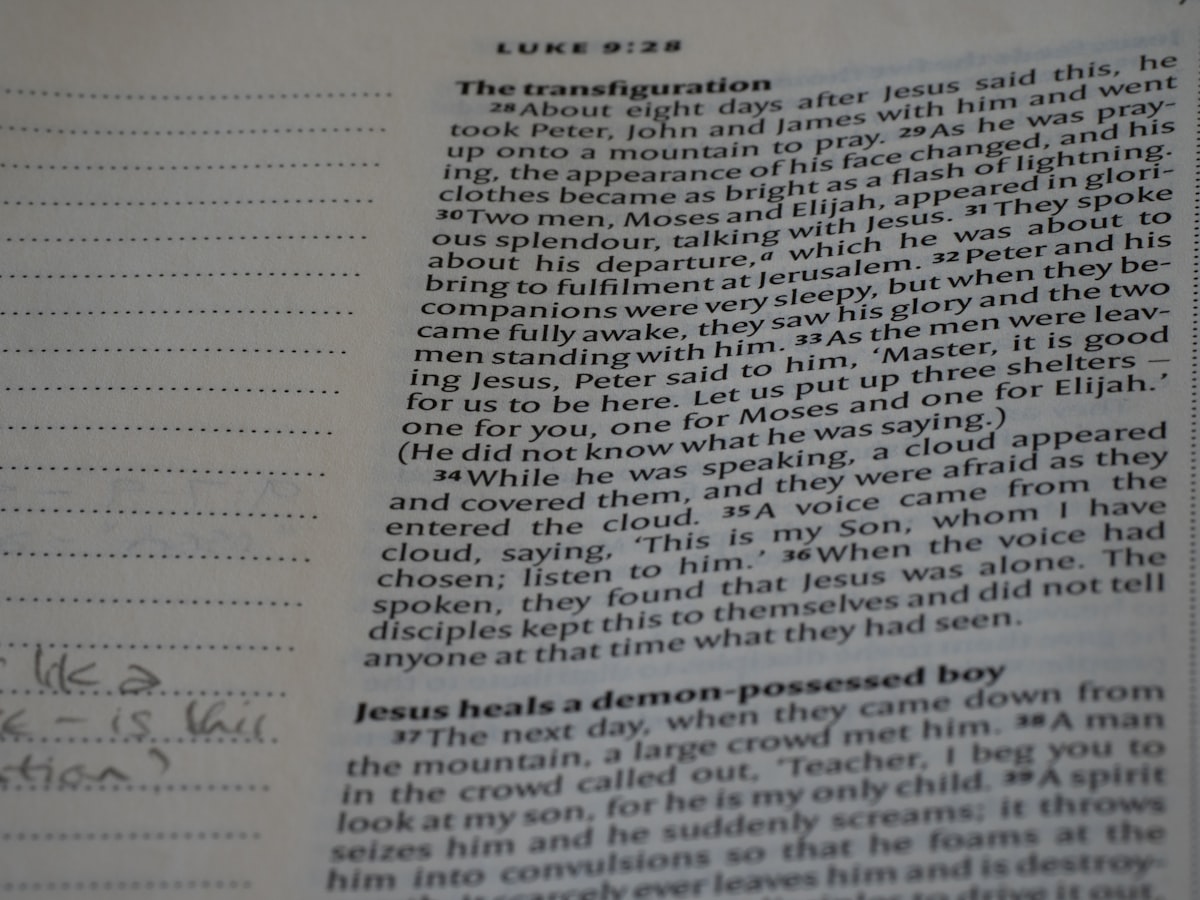 LUKE 9:28
The transfiguration
28 About eight days after Jesus said this, he
took Peter, John and James with him and went
up onto a mountain to pray. 29 As he was pray-
ing, the appearance of his face changed, and his
clothes became as bright as a flash of lightning.
30 Two men, Moses and Elijah, appeared in glori-
ous splendour, talking with Jesus. 31 They spoke
about his departure,a which he was about to
bring to fulfilment at Jerusalem. 32 Peter and his
companions were very sleepy, but when they be-
came fully awake, they saw his glory and the two
men standing with him. 33 As the men were leav-
ing Jesus, Peter said to him, ‘Master, it is good
for us to be here. Let us put up three shelters –
one for you, one for Moses and one for Elijah.’
(He did not know what he was saying.)
34 While he was speaking, a cloud appeared
and covered them, and they were afraid as they
entered the cloud. 35 A voice came from the
cloud, saying, ‘This is my Son, whom I have
chosen; listen to him.’ 36 When the voice had
spoken, they found that Jesus was alone. The
disciples kept this to themselves and did not tell
anyone at that time what they had seen.
Jesus heals a demon-possessed boy
37 The next day, when they came down from
the mountain, a large crowd met him. 38 A man
in the crowd called out, ‘Teacher, I beg you to
look at my son, for he is my only child. 39 A spirit
seizes him and he suddenly screams; it throws
him into convulsions so that he foams at the
ever leaves him and is destroy-
to drive it out,
like a
– is this